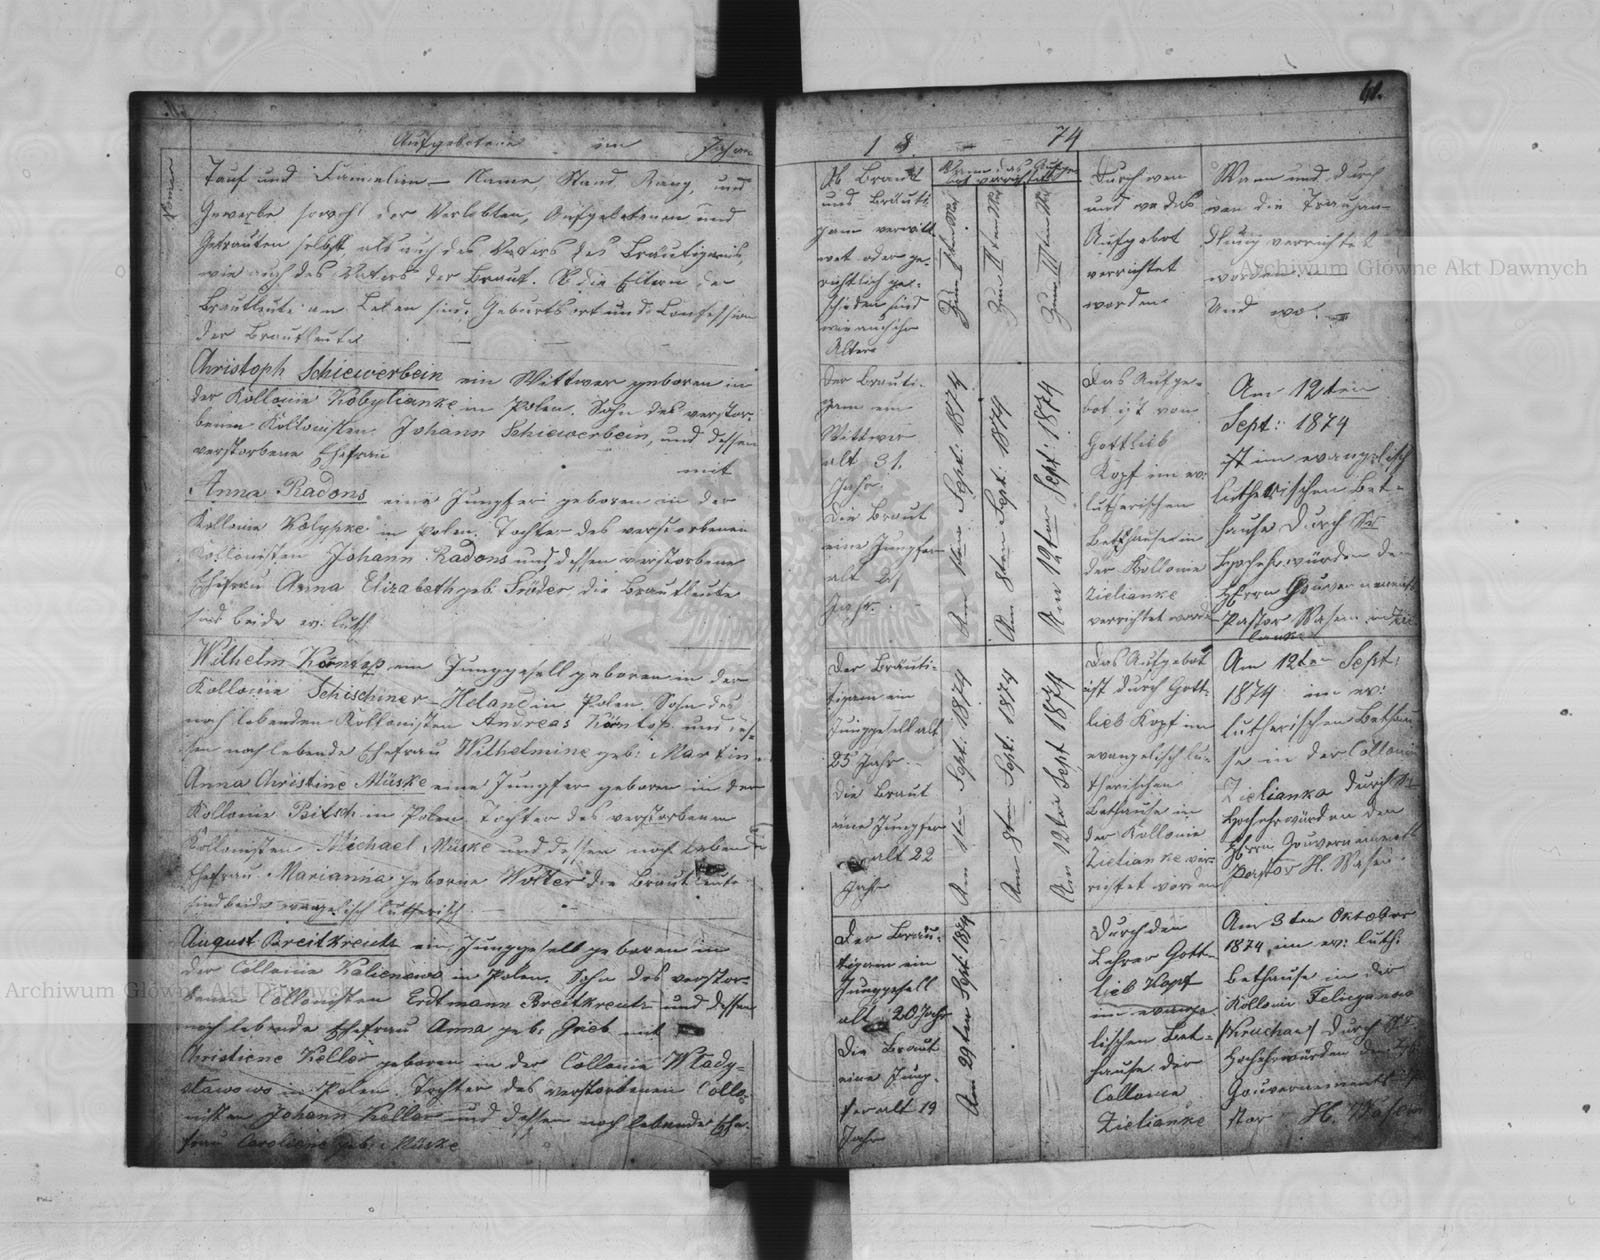 61.
Aufgebotene im Jahre
18 74
Tauf und Familien- Name, Stand, Rang, und
Gewerbe sowohl der Verlobten, Aufgebotenen und
Getrauten selbst, als auch des Vaters des Bräutigams,
wie auch des Vaters der Braut. Ob die Eltern der
Brautleute am Leben sind, Geburtsort und Confession
der Brautleute
Christoph Schiewerbein ein Wittwer geboren in
der Kollonie Kobylianke in Polen. Sohn des verstor-
benen Kollonisten Johann Schiewerbein, und dessen
verstorbene Ehefrau
mit
Anna Radons eine Jungfer geboren in der
Kollonie in Polen. Tochter des verstorbenen
Kollonisten Johann Radons und dessen verstorbene
Ehefrau Anna Elizabeth geb: die Brautleute
sind beide ev: luth:
Wilhelm ein Junggesell geboren in der
Kollonie in Polen, Sohn des
noch lebenden Kollonisten Andreas und des-
sen noch lebende Ehefrau Wilhelmine geb: Martin.
Anna Christine Müske eine Jungfer geboren in der
Kollonie in Polen. Tochter des verstorbenen
Kollonisten Michael Müske und dessen noch lebende
Ehefrau Marianna geborne Wolter die Brautleute
sind beide evangelisch lutherisch
August Breitkreutz ein Junggesell geboren in
der Collonie in Polen. Sohn des verstor-
benen Collonisten Erdtmann Breitkreutz und dessen
noch lebende Ehefrau Anna geb: mit
Christiene Keller geboren in der Collonie Wlady-
slawowo in Polen. Tochter des verstorbenen Collo-
nisten Johann Keller und dessen noch lebende Ehe-
frau Caroliene geb: Müske
Ob Braut
und Bräuti-
gam verwitt-
wet oder ge-
richtlich ge-
schieden sind
wie auch ihr
Alter
Wann das Aufge-
bot verrichtet
Zum I ten Mal
Zum II ten Mal
Zum III ten Mal
Durch wen
und wo das
Aufgebot
verrichtet
worden
Wann und durch
wen die Trauhan-
dlung verrichtet
worden
Und wo.
Der Bräuti-
gam ein
Wittwer
alt 31.
Jahr.
Die Braut
eine Jungfer
alt 21
Jahr.
Am 1ten Sept: 1874
Am 8ten Sept: 1874
Am 12ten Sept: 1874
Das Aufge-
bot ist von
Gottlieb
Kopf im ev:
lutherischen
Bethause in
der Kollonie
Zielianke
verrichtet word
Am 12ten
Sept: 1874
ist im evangelisch
lutherischen Bet-
hause durch Sr
Hochehrwürden den
Herrn Gouvernements
Pastor Wasem in Zie-
lianke
Der Bräuti-
tigam ein
Junggesell alt
25 Jahr
Die Braut
eine Jungfer
alt 22
Jahr
Am 1ten Sept: 1874
Am 8ten Sept: 1874
Am 12ten Sept 1874
Das Aufgebot
ist durch Gott-
lieb Kopf im
evangelisch lu-
therischen
Bethause in
der Kollonie
Zielianke ver-
richtet worden
Am 12ten Sept:
1874 im ev:
lutherischen Bethau-
se in der Collonie
Zielianka durch Sr
Hochehrwürden den
Herrn Gouvernements
Pastor H. Wasem
Der Bräu-
tigam ein
Junggesell
alt 20 Jahr
Die Braut
eine Jung-
fer alt 19
Jahr
Am 29ten Sept: 1874
Durch den
Lehrer Gott-
lieb Kopf
im evange-
lischen Bet-
hause der
Collonie
Zielianke
Am 3ten Oktober
1874 im ev: luth:
Bethause in der
Kollonie
durch Sr.
Hochehrwürden den
Gouvernements Pa-
stor H. Wasem
Archiwum Główne Akt Dawnych
Archiwum Główne Akt Dawnych